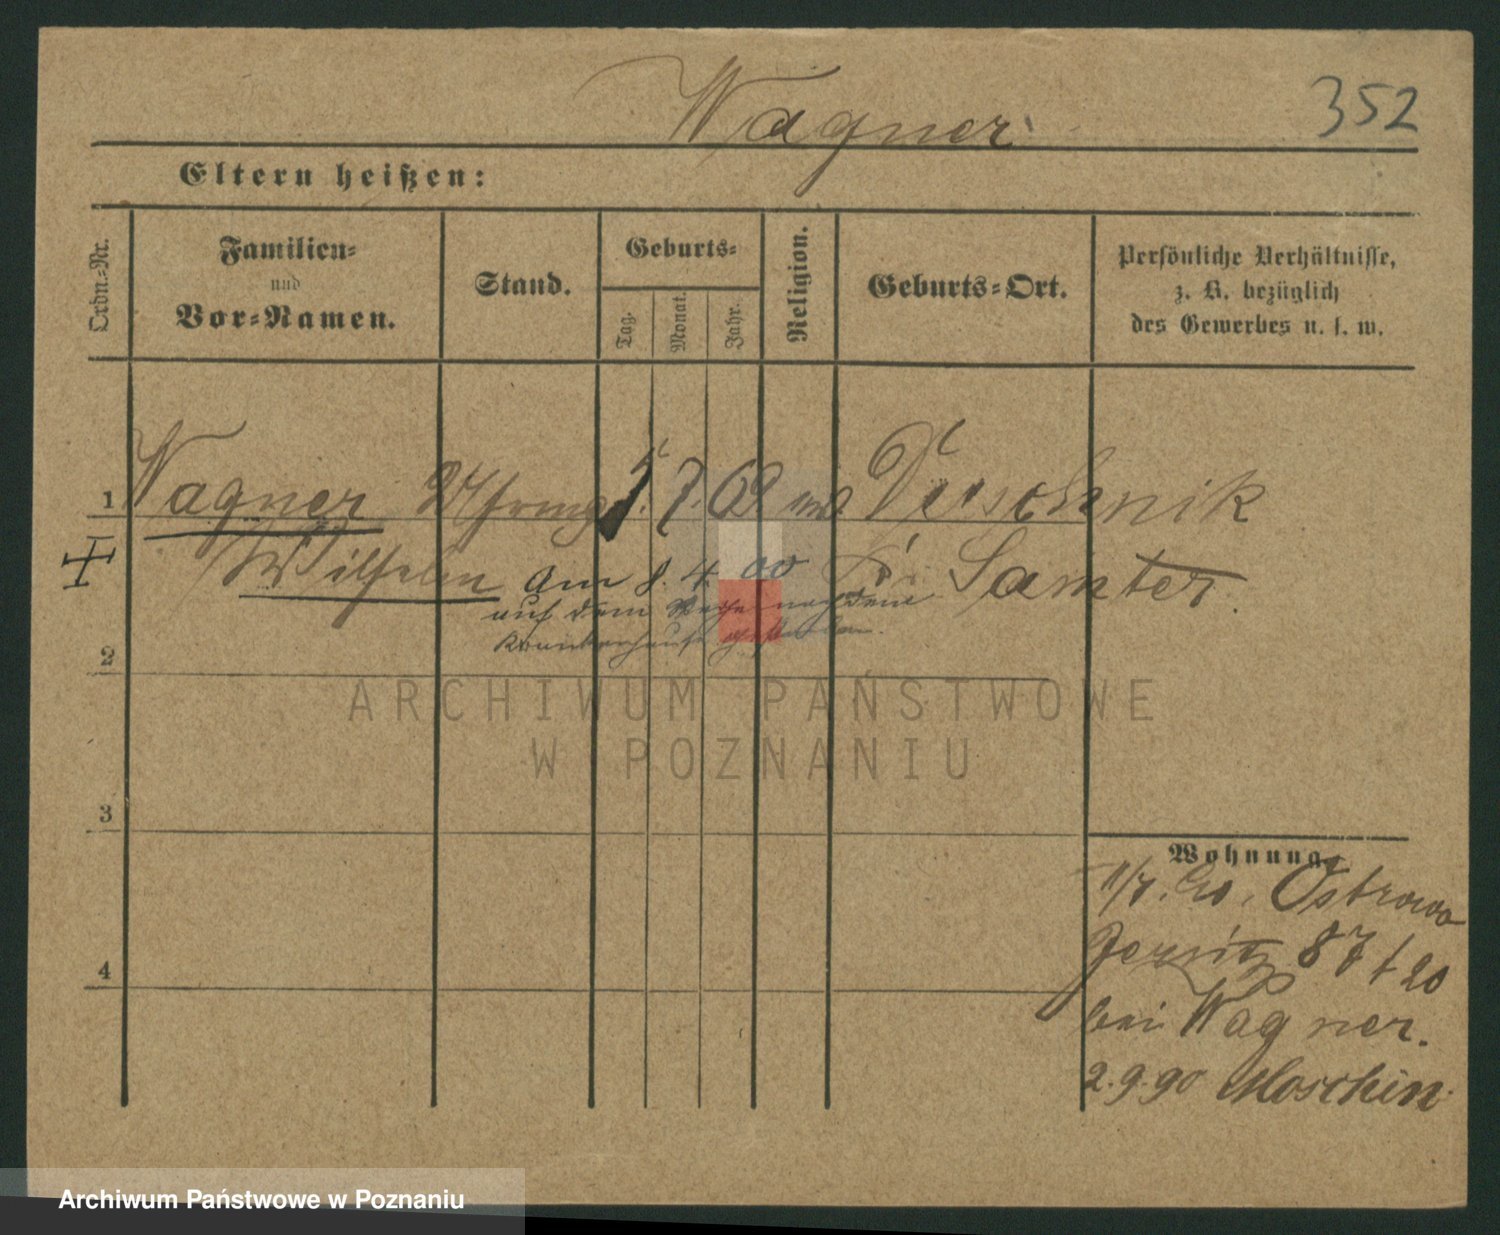 Wagner
352
Eltern heißen:
Ordn.-Nr.
Familien-
und
Vor-Namen.
Stand.
Geburts-
Tag.
Monat.
Jahr.
Religion.
Geburts-Ort.
Persönliche Verhältnisse,
z. B. bezüglich
des Gewerbes u. s. w.
1 Wagner 5. 7. 69
Wilhelm Am 8. 4. 00 Samter.
auf dem
Krankenhause gestorben.
2
ARCHIWUM PAŃSTWOWE
W POZNANIU
3
4
Wohnung
11/7. 90. Ostrowo
Jersitz 87 t 20
bei Wagner.
2.9.90 Moschin
Archiwum Państwowe w Poznaniu